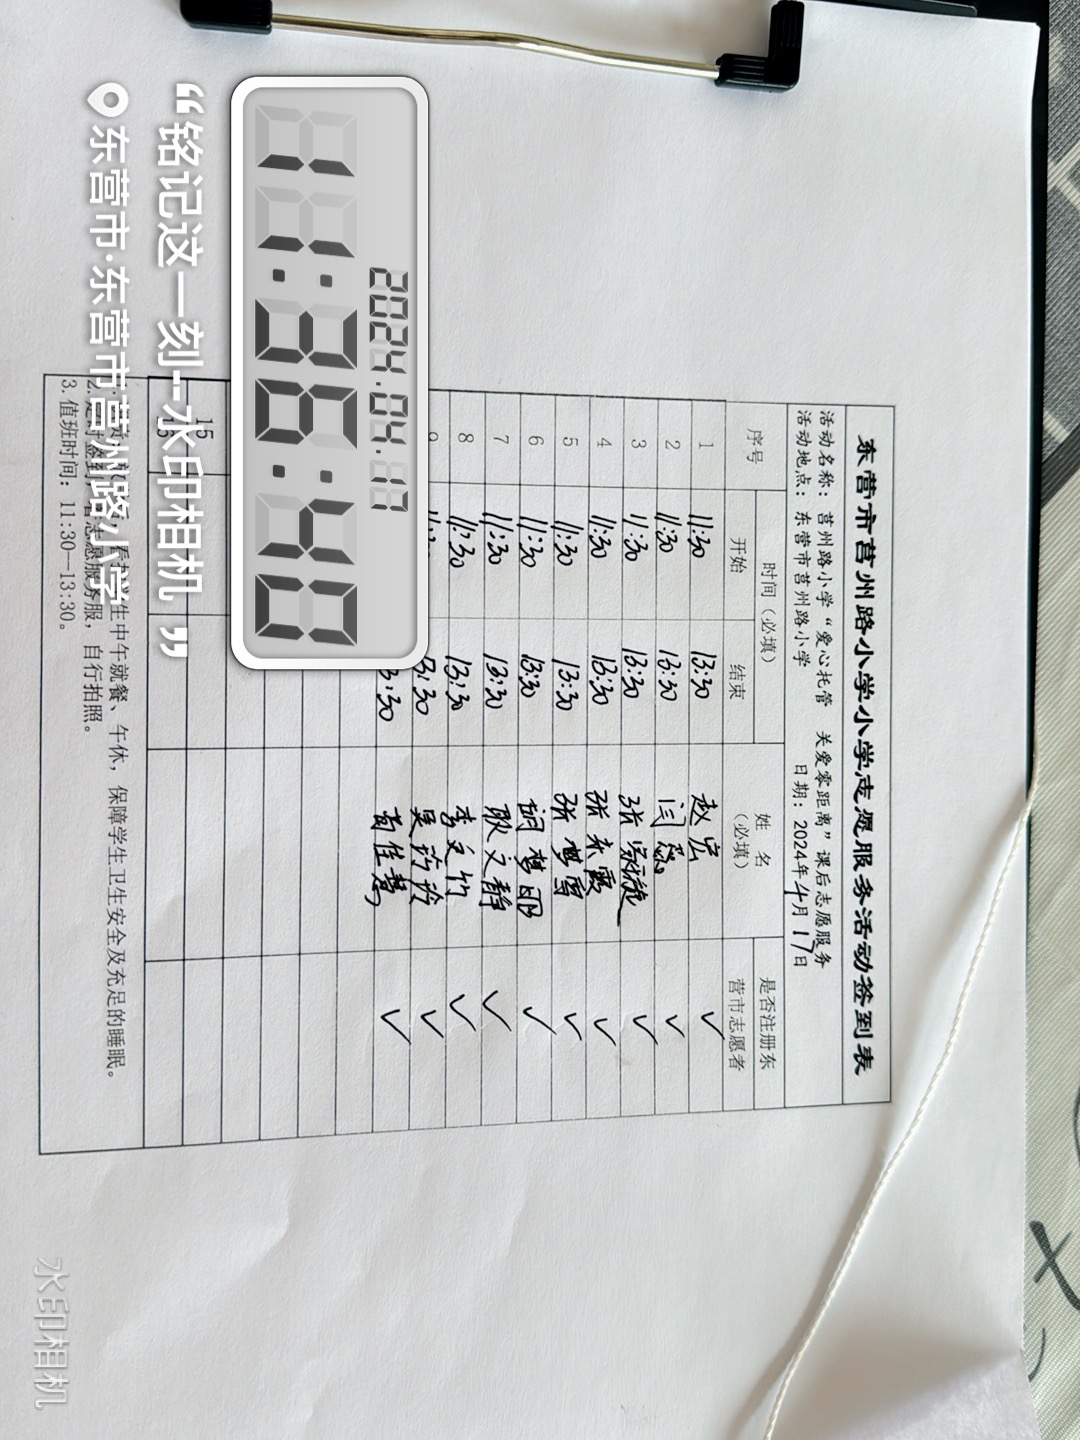 东营市莒州路小学小学志愿服务活动签到表
活动名称：莒州路小学“爱心托管 关爱零距离”课后志愿服务
活动地点：东营市莒州路小学 日期：2024年4月17日
序号 时间（必填） 姓名（必填） 是否注册东营市志愿者
开始 结束
1 11:30 13:30 赵宏 ✓
2 11:30 13:30 闫磊 ✓
3 11:30 13:30 张家璇 ✓
4 11:30 13:30 张东霞 ✓
5 11:30 13:30 张梦雪 ✓
6 11:30 13:30 胡梦 ✓
7 11:30 13:30 耿文静 ✓
8 11:30 13:30 李文竹 ✓
9 13:30 吴 ✓
3:30 苗佳慧 ✓
15
生中午就餐、午休，保障学生卫生安全及充足的睡眠。
志愿服务服，自行拍照。
3. 值班时间：11:30—13:30。
2024.04.17
11:36:40
“铭记这一刻--水印相机 ”
东营市·东营市莒州路小学
水印相机